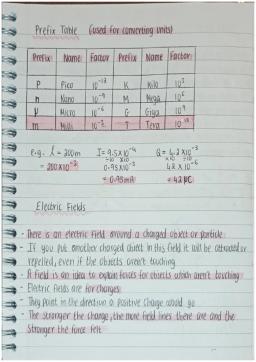 Prefix Table (used for converting units)
Prefix Name Factor Prefix Name Factor
P Pico 10⁻¹² K Kilo 10³
n Nano 10⁻⁹ M Mega 10⁶
μ Micro 10⁻⁶ G Giga 10⁹
m Milli 10⁻³ T Tera
e.g. λ = 200m I = 9.5×10⁻⁴
= 200×10⁻³ 0.95×10⁻³
= 0.95mA = 42μC
Electric Fields
- There is an electric field around a charged object or particle
- If you put another charged object in this field it will be attracted or
repelled, even if the objects aren't touching
- A field is an idea to explain forces for objects which aren't touching
- Electric fields are for charges
- They point in the direction a positive charge would go
- The stronger the charge, the more field lines there are and the
stronger the force felt